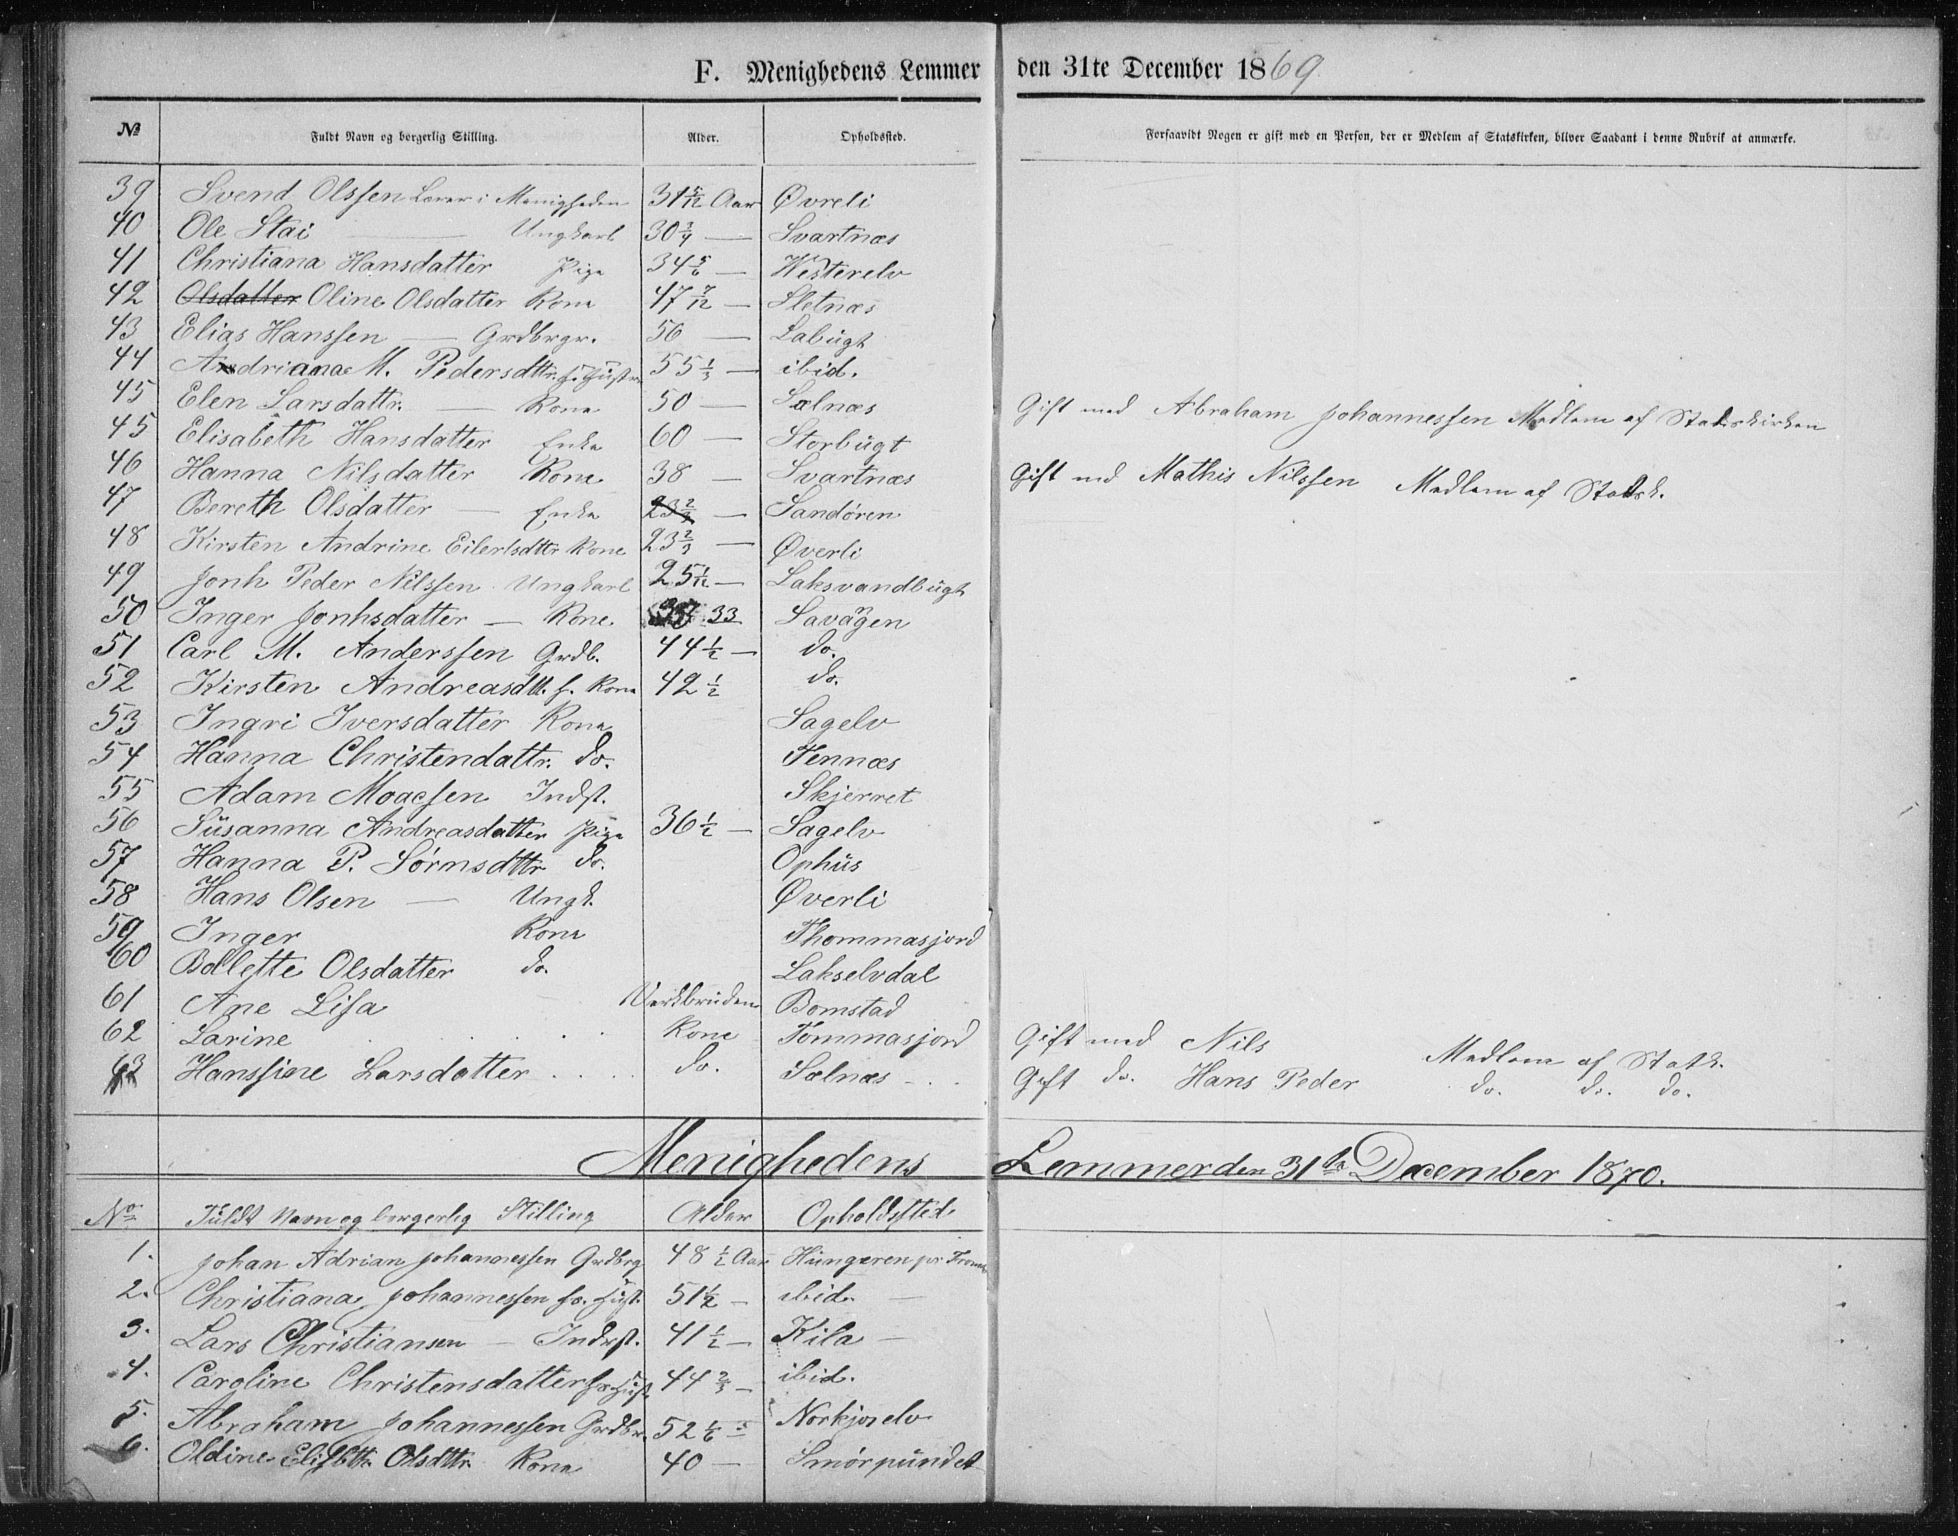 F. Menighedens Lemmer den 31te December 1869
№ Fuldt Navn og borgerlig Stilling. Alder. Opholdssted. Forsaavidt Nogen er gift med en Person, der er Medlem af Statskirken, bliver Saadant i denne Rubrik at anmærke.
39 Svend Olssen Lærer i Menigheden 31 5/12 Aar Øvreli
40 Ole Stai — Ungkarl 30 3/4 — Svartnæs
41 Christiana Hansdatter Pige 34 5/6 — Westerelv
42 Olsdatter Oline Olsdatter Kone 47 7/12 — Sletnæs
43 Elias Hanssen — Grdbrgr. 56 — Labugt
44 Andriana M. Pedersdttr. h. Hustru 55 1/3 — ibid.
45 Elen Larsdattr. — Kone 50 — Sælnæs Gift med Abraham Johannessen Medlem af Statskirken
45 Elisabeth Hansdatter Enke 60 — Storbugt
46 Hanna Nilsdatter Kone 38 — Svartnæs Gift med Mathis Nilssen Medlem af Statsk.
47 Bereth Olsdatter — Enke 23 2/3 — Sandøren
48 Kirsten Andrine Eilertsdttr Kone 23 2/3 — Øverli
49 Jonh Peder Nilssen Ungkarl 25 1/12 — Laksvandbugt
50 Inger Jonhsdatter — Kone 33 Savägen
51 Carl M. Anderssen Grdb. 44 1/2 — do.
52 Kirsten Andreasdtt. h. Kone 42 1/2 do.
53 Ingri Iversdatter Kone Sagelv
54 Hanna Christendattr. do. Tennæs
55 Adam Moaesen Indst. Skjerret
56 Susanna Andreasdatter Pige 36 1/2 — Sagelv
57 Hanna P. Sørnsdttr do. Ophus
58 Hans Olsen — Ungk. Øverli
59 Inger Kone Thommasjord
60 Bollette Olsdatter do. Lakselvdal
61 Ane Lisa Værkbruden Bomstad
62 Larine Kone Tommasjord Gift med Nils Medlem af Statk.
63 Hanssine Larsdatter do. Sælnæs Gift do. Hans Peder do. do. do.
Menighedens Lemmer den 31te December 1870.
No. Fuldt Navn og borgerlig Stilling Alder Opholdssted
1. Johan Adrian Johannessen Grdbrg 48 1/2 Aar Hungeren pr Tromsø
2. Christiana Johannessen hs. Hust. 51 1/2 — ibid. —
3. Lars Christiansen — Indrst. 41 1/2 — Kila —
4. Caroline Christensdatter hs Hust. 44 2/3 — ibid.
5. Abraham Johannessen Grdbr. 52 1/6 = Norkjoselv
6. Oldine Elisbth. Olsdttr. Kone 40 — Smørpundet